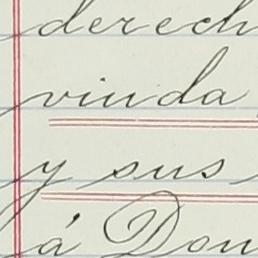 derech
viuda
y sus
á Don